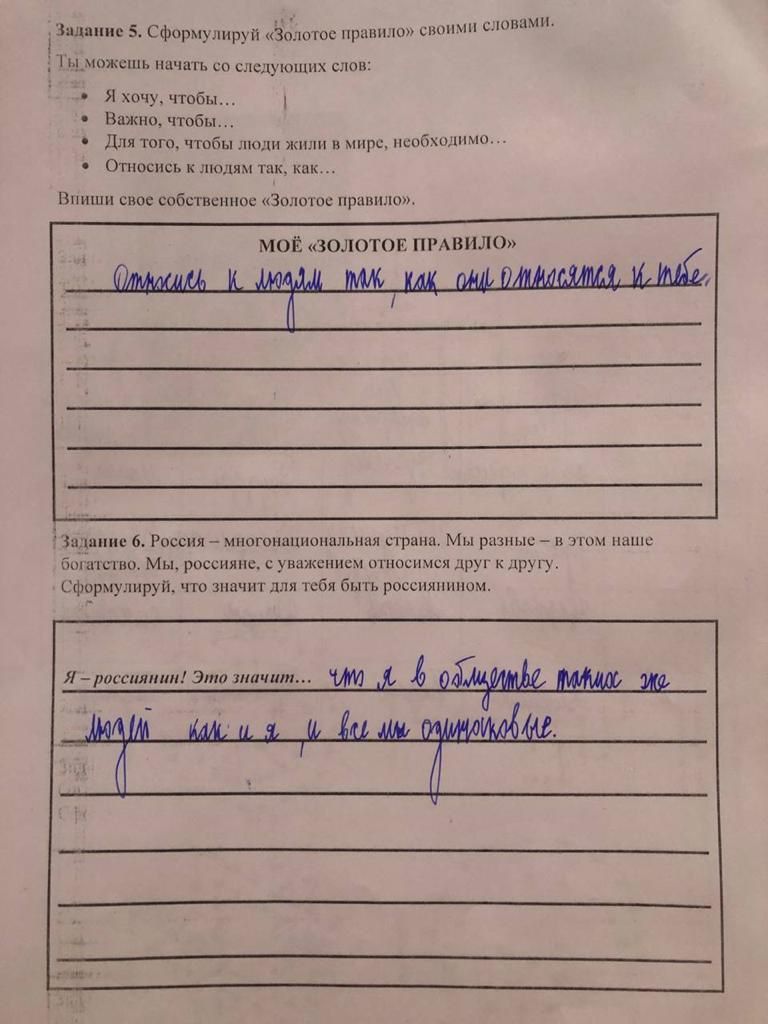 Задание 5. Сформулируй «Золотое правило» своими словами.
Ты можешь начать со следующих слов:
• Я хочу, чтобы…
• Важно, чтобы…
• Для того, чтобы люди жили в мире, необходимо…
• Относись к людям так, как…
Впиши свое собственное «Золотое правило».
МОЁ «ЗОЛОТОЕ ПРАВИЛО»
Относись к людям так, как они относятся к тебе.
Задание 6. Россия – многонациональная страна. Мы разные – в этом наше
богатство. Мы, россияне, с уважением относимся друг к другу.
Сформулируй, что значит для тебя быть россиянином.
Я – россиянин! Это значит… что я в общецтве таких же
людей как и я, и все мы одинаковые.